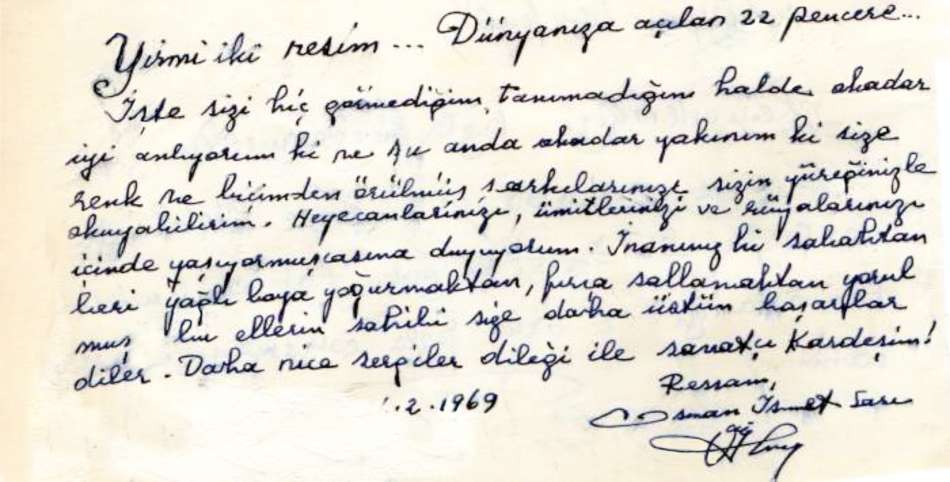 Yirmi iki resim... Dünyanıza açılan 22 pencere...
İşte sizi hiç görmediğim, tanımadığım halde okadar
iyi anlıyorum ki ve şu anda okadar yakınım ki size
renk ve biçimden örülmüş şarkılarınızı sizin yüreğinizle
okuyabilirim. Heyecanlarınızı, ümitlerinizi ve rüyalarınızı
içinde yaşıyormuşcasına duyuyorum. İnanınız ki sabahtan
beri yağlı boya yoğurmaktan, fırça sallamaktan yorul
muş bu ellerin sahibi size daha üstün başarılar
diler. Daha nice sergiler dileği ile sanatçı Kardeşim!
.2.1969
Ressam,
Osman İsmet Sarı